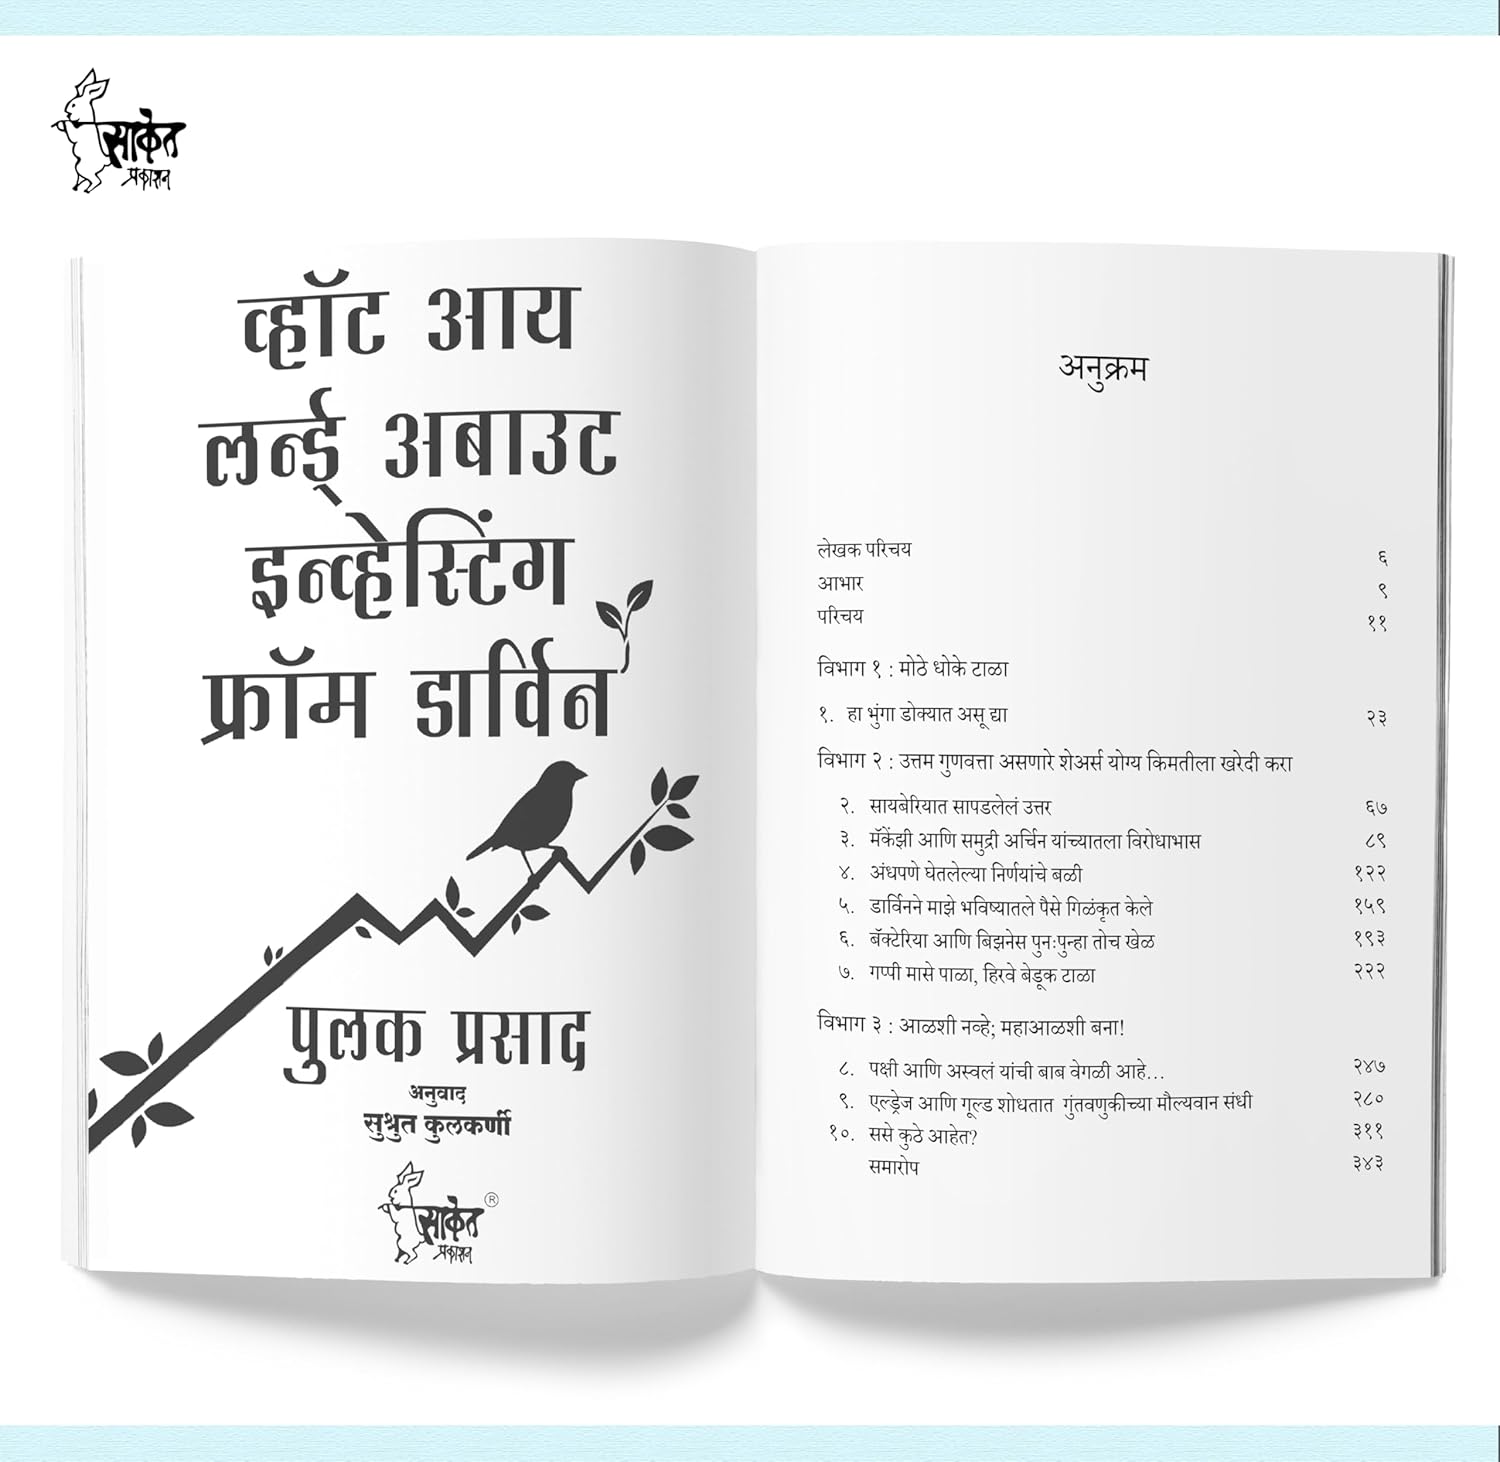 साकेत
प्रकाशन
व्हॉट आय
लर्न्ड् अबाउट
इन्व्हेस्टिंग
फ्रॉम डार्विन
पुलक प्रसाद
अनुवाद
सुश्रुत कुलकर्णी
साकेत ®
प्रकाशन
अनुक्रम
लेखक परिचय ६
आभार ९
परिचय ११
विभाग १ : मोठे धोके टाळा
१. हा भुंगा डोक्यात असू द्या २३
विभाग २ : उत्तम गुणवत्ता असणारे शेअर्स योग्य किमतीला खरेदी करा
२. सायबेरियात सापडलेलं उत्तर ६७
३. मॅकेंझी आणि समुद्री अर्चिन यांच्यातला विरोधाभास ८९
४. अंधपणे घेतलेल्या निर्णयांचे बळी १२२
५. डार्विनने माझे भविष्यातले पैसे गिळंकृत केले १५९
६. बॅक्टेरिया आणि बिझनेस पुनःपुन्हा तोच खेळ १९३
७. गप्पी मासे पाळा, हिरवे बेडूक टाळा २२२
विभाग ३ : आळशी नव्हे; महाआळशी बना!
८. पक्षी आणि अस्वलं यांची बाब वेगळी आहे... २४७
९. एल्ड्रेज आणि गूल्ड शोधतात गुंतवणुकीच्या मौल्यवान संधी २८०
१०. ससे कुठे आहेत? ३११
समारोप ३४३